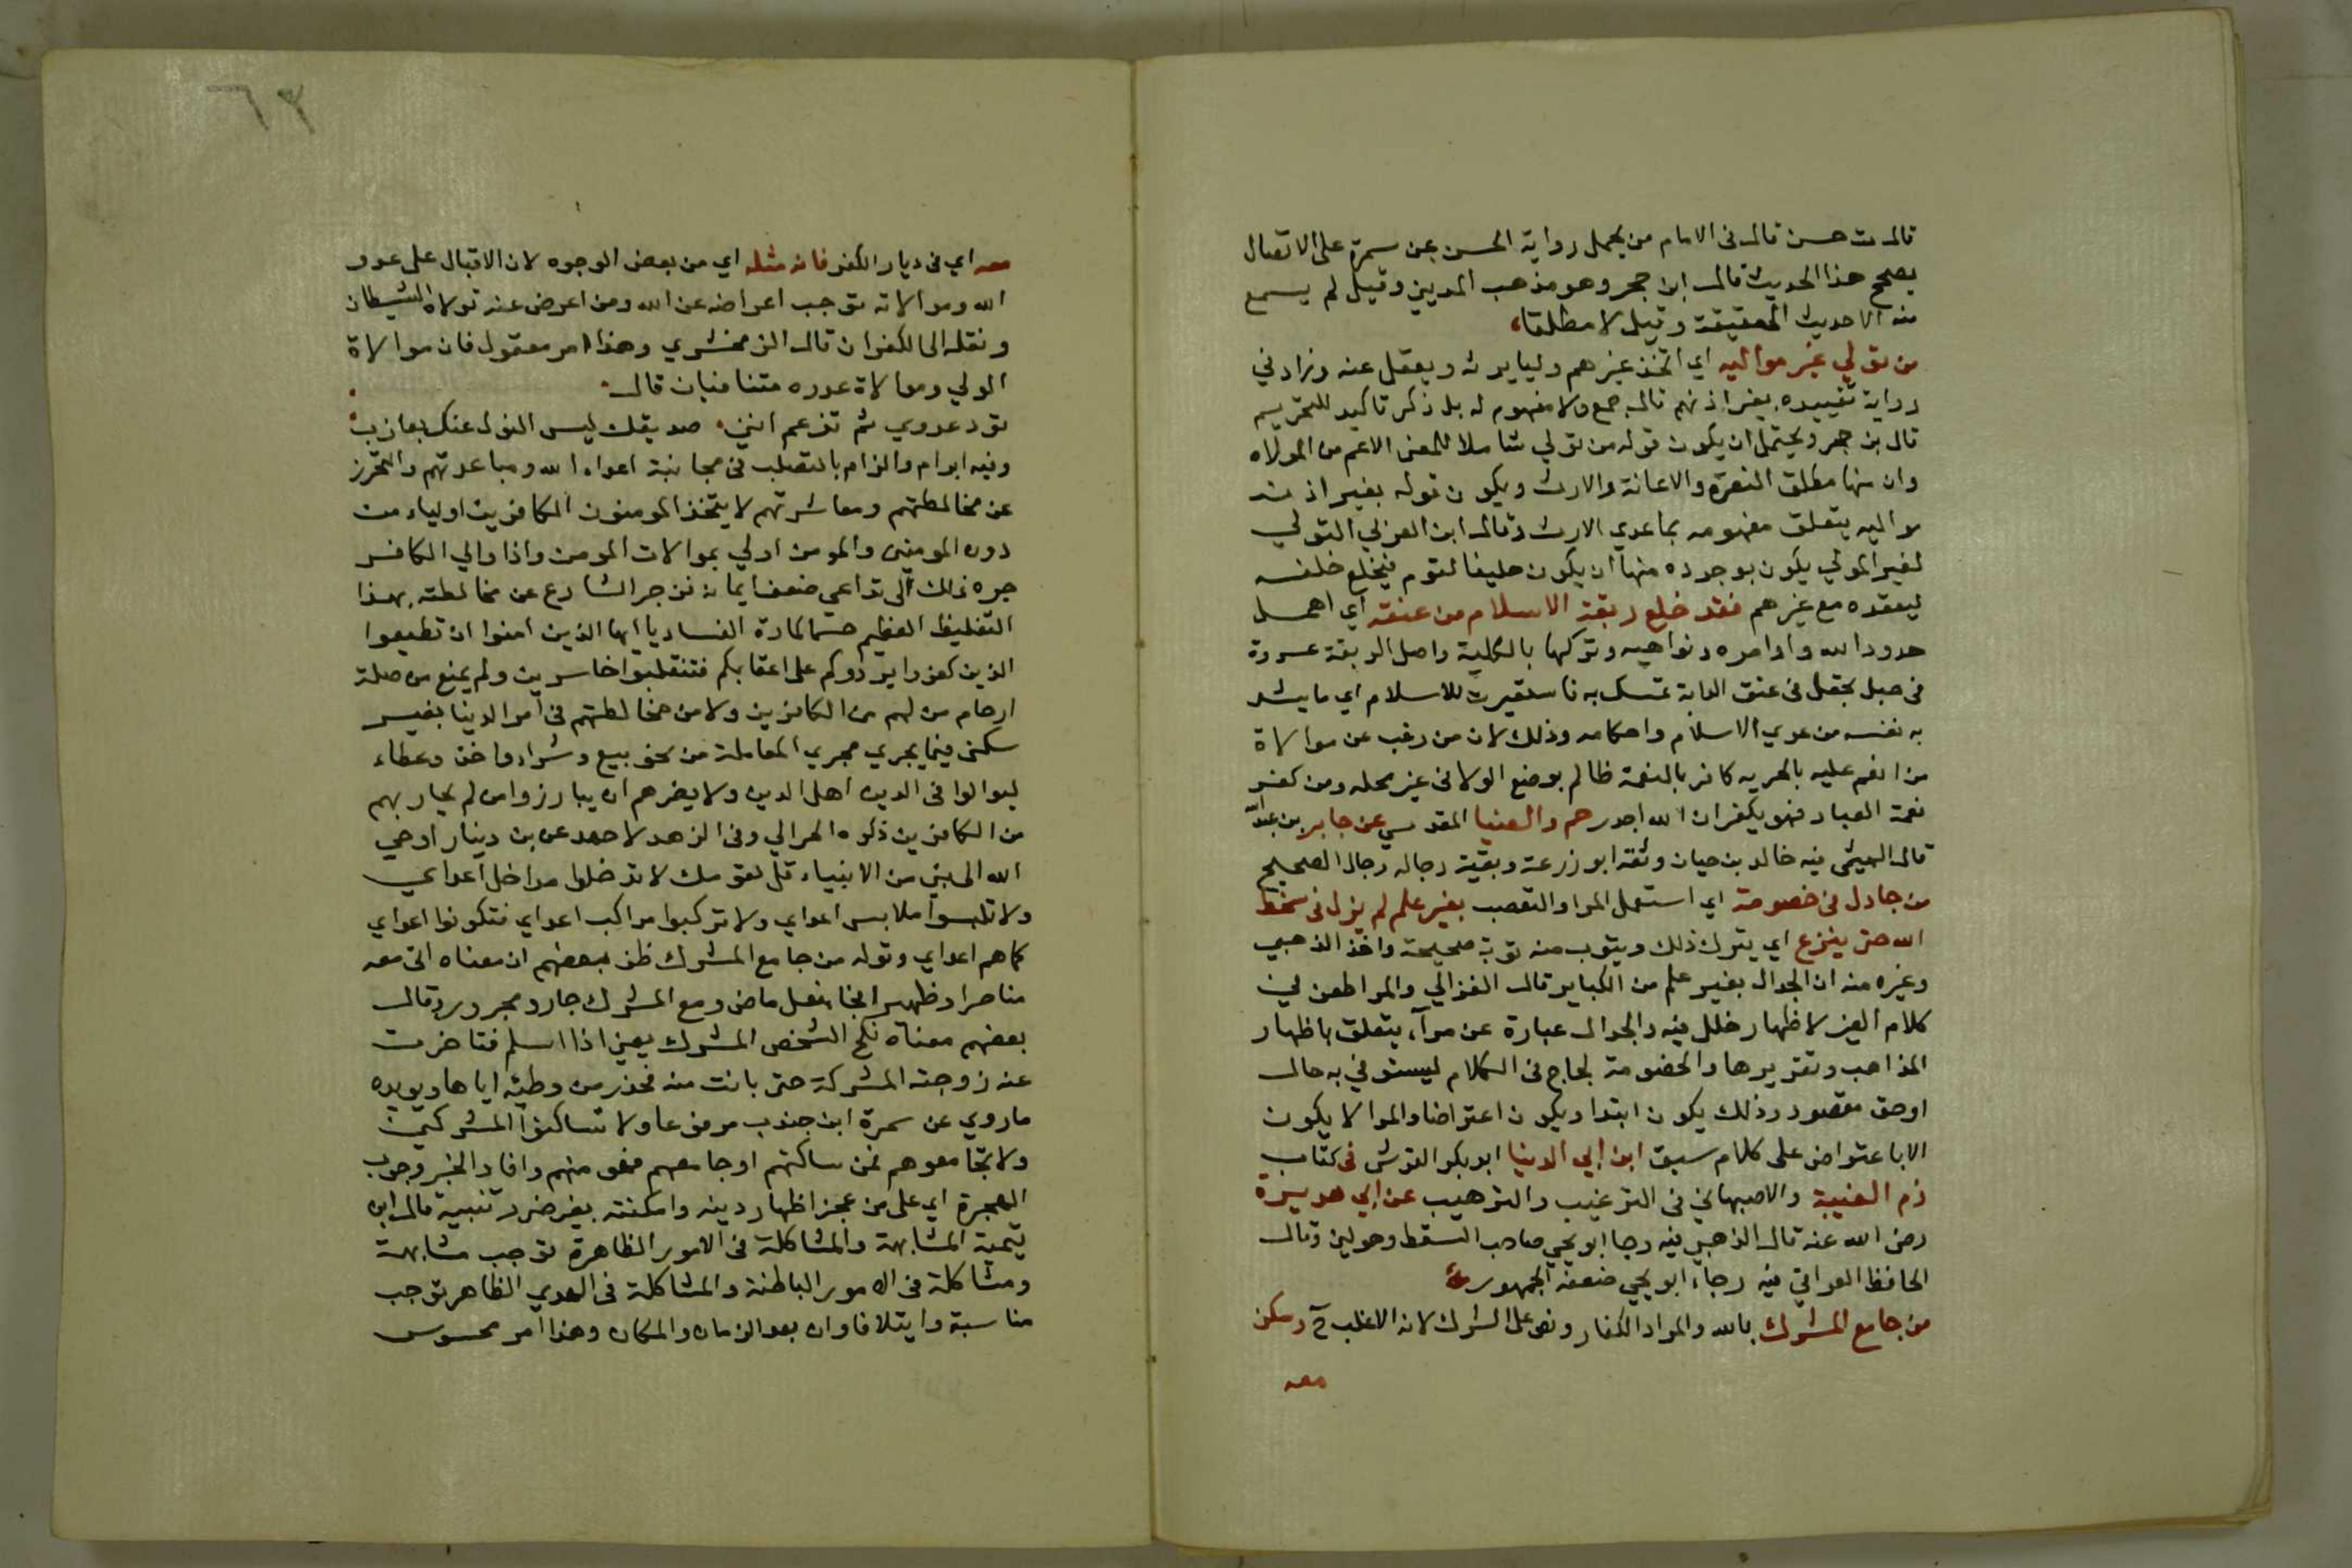 قال ت حسن قال في الامام من يحمل رواية الحسن عن سمرة على الاتصال
يصحح هذا الحديث قال ابن حجر وهو مذهب المديني وقيل لم يسمع
منه الا حديث العقيقة وقيل لا مطلقا
من تولي غير مواليه اي اتخذ غيرهم وليا يرثه ويعقل عنه وزاد في
رواية تقييده بغير اذنهم قال جمع ولا مفهوم له بل ذكر تاكيد للتحريم
قال بن حجر ويحتمل ان يكون قوله من تولي شاملا للمعنى الاعم من المولاه
وان منها مطلق النصرة والاعانة والارث ويكون قوله بغير اذن
مواليه يتعلق مفهومه بما عدي الارث وقال ابن العربي التولي
لغير المولي يكون بوجوده منها ان يكون حليفا لقوم فيخلع حلفه
ليعقده مع غيرهم فقد خلع ربقة الاسلام من عنقه اي اهمل
حدود الله واوامره ونواهيه وتركها بالكلية واصل الربقة عروة
في حبل يجعل في عنق الدابة تمسك به فاستعيرت للاسلام اي ما يشد
به نفسه من عري الاسلام واحكامه وذلك لان من رغب عن موالاة
من انعم عليه بالحريه كافر بالنعمة ظالم بوضع الولا في غير محله ومن كفر
نعمة العباد فهو بكفران الله اجدر حم والضيا المقدسي عن جابر بن عبدالله
قال الهيثمي فيه خالد بن حيان وثقه ابو زرعة وبقية رجاله رجال الصحيح
من جادل في خصومة اي استعمل المرا والتعصب بغير علم لم يزل في سخط
الله حتى ينزع اي يترك ذلك ويتوب منه توبة صحيحة واخذ الذهبي
وغيره منه ان الجدال بغير علم من الكباير قال الغزالي والمرا طعن في
كلام الغير لاظهار خلل فيه والجدال عبارة عن مرآء يتعلق باظهار
المذاهب وتقريرها والخصومة لجاج في الكلام ليستوفي به مال
او حق مقصود وذلك يكون ابتدا ويكون اعتراضا والمرا لا يكون
الا باعتراض على كلام سبق ابن ابي الدنيا ابو بكر القرشي في كتاب
ذم الغيبة والاصبهاني في الترغيب والترهيب عن ابي هريرة
رضى الله عنه قال الذهبي فيه رجا ابو يحي صاحب السقط وهو لين وقال
الحافظ العراقي فيه رجاء ابو يحي ضعفه الجمهور
من جامع المشرك بالله والمراد الكفار ونص على الشرك لانه الاغلب ح وسكن
معه
٦٣
معه اي في ديار الكفر فانه مثله اي من بعض الوجوه لان الاقبال على عدو
الله وموالاته توجب اعراضه عن الله ومن اعرض عنه تولاه الشيطان
ونقله الى الكفران قال الزمخشري وهذا امر معقول فان موالاة
الولي وموالاة عدوه متنافيان قال
تود عدوي ثم تزعم انني صديقك ليس النوك عنك بعازب
وفيه ابرام والزام بالتصلب في مجانبة اعداء الله ومباعدتهم والتحرز
عن مخالطتهم ومعاشرتهم لا يتخذ المومنون الكافرين اولياء من
دون المومنين والمومن اولي بموالات المومن واذا والي الكافر
جره ذلك الى تداعي ضعف ايمانه فزجر الشارع عن مخالطته بهذا
التغليظ العظيم حسما لمادة الفساد يا ايها الذين امنوا ان تطيعوا
الذين كفروا يردوكم على اعقابكم فتنقلبوا خاسرين ولم يمنع من صلة
ارحام من لهم من الكافرين ولا من مخالطتهم في امر الدنيا بغير
سكنى فيما يجري مجري المعاملة من نحو بيع وشراء واخذ وعطاء
ليوالوا في الدين اهل الدين ولا يضرهم ان يبارزوا من لم يحاربهم
من الكافرين ذكره الحرالي وفي الزهد لاحمد عن بن دينار اوحي
الله الى نبي من الانبياء قل لقومك لا تدخلوا مداخل اعداي
ولا تلبسوا ملابس اعداي ولا تركبوا مراكب اعداي فتكونوا اعداي
كما هم اعداي وقوله من جامع المشرك ظن بعضهم ان معناه اتى معه
مناصرا وظهيرا فجا فعل ماض ومع المشرك جار ومجرور وقال
بعضهم معناه نكح الشخص المشرك يعني اذا اسلم فتاخرت
عنه زوجته المشركة حتى بانت منه فحذر من وطئه اياها ويويده
ما روي عن سمرة ابن جندب مرفوعا ولا تساكنوا المشركين
ولا تجامعوهم فمن ساكنهم او جامعهم فهو منهم وافاد الخبر وجوب
الهجرة اي على من عجز اظهار دينه وامكنته بغير ضرر تنبيه قال ابن
تيمية المشابهة والمشاكلة في الامور الظاهرة توجب مشابهة
ومشاكلة في الامور الباطنة والمشاكلة في الهدي الظاهر توجب
مناسبة وايتلافا وان بعد الزمان والمكان وهذا امر محسوس